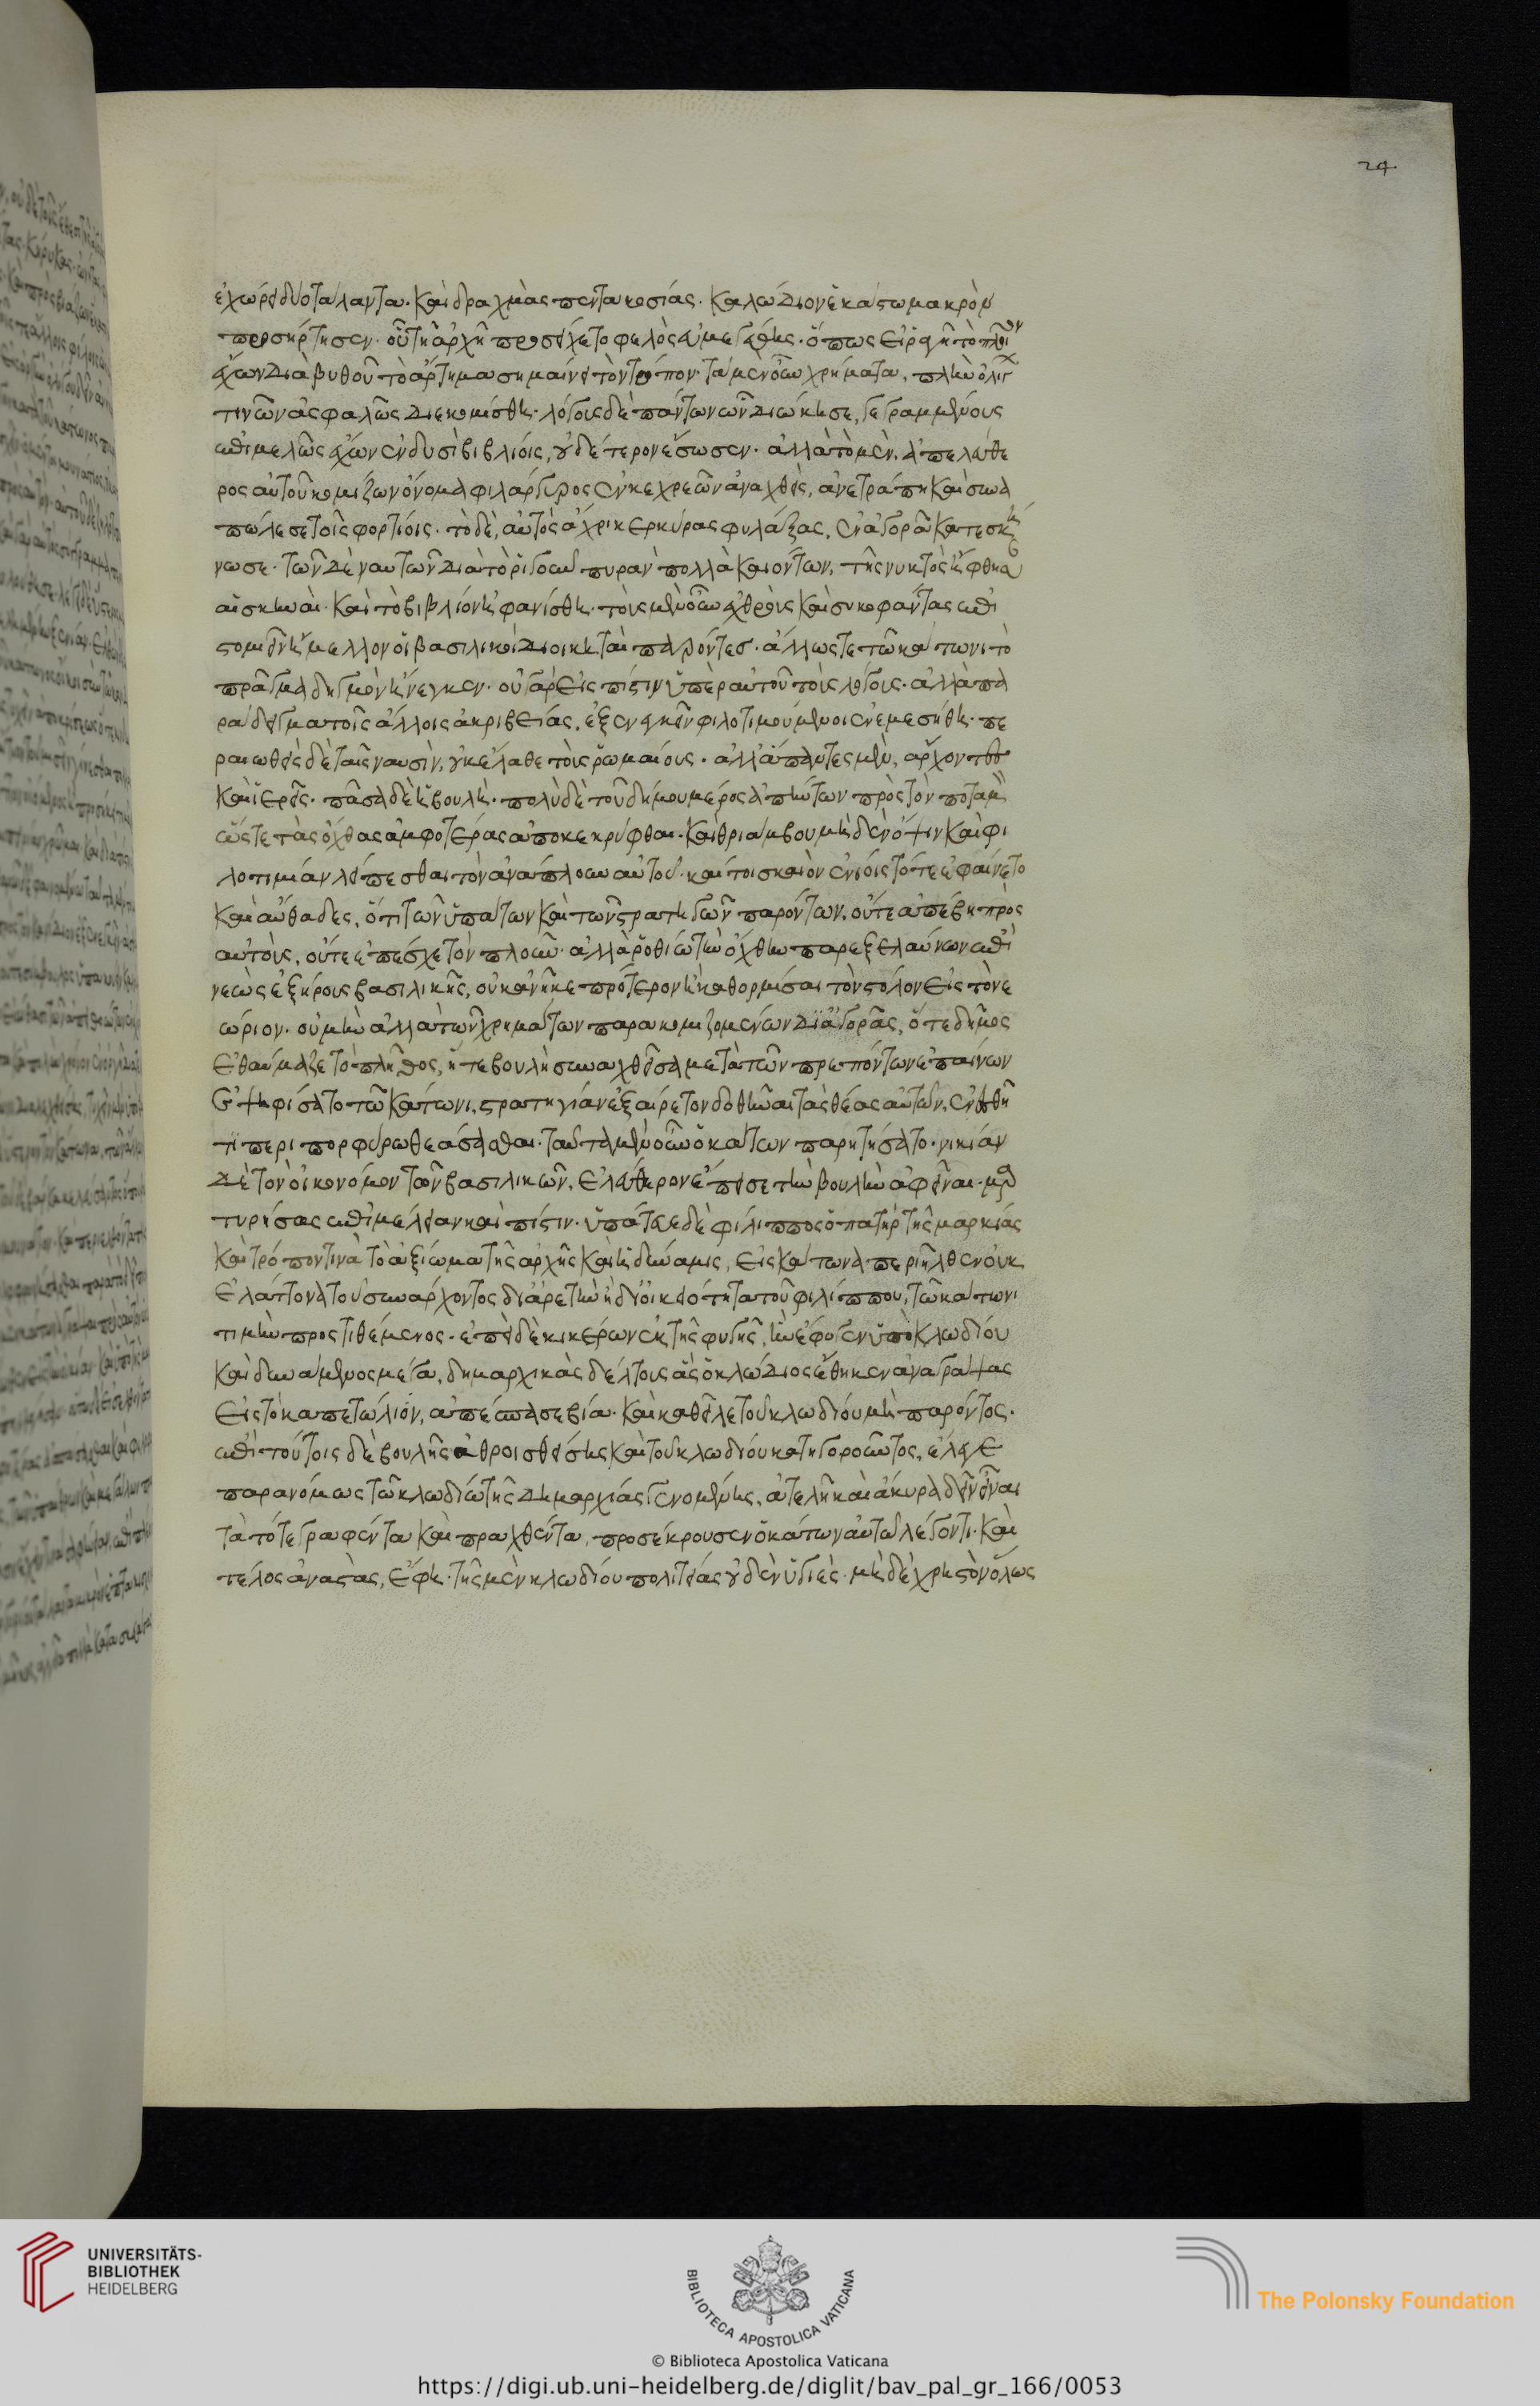 ἐχώρει δύο τάλαντα· καὶ δραχμὰς πεντακοσίας· καλώδιον ἑκάστω μακρὸν
προσήρτησεν· οὗ τῆ ἀρχῆ προσείχετο φελὸς εὐμεγέθης· ὅπως εἰ ῥαγῆ τὸ πλοῖον
ἔχων διὰ βυθοῦ τὸ ἄρτημα σημαίνει τὸν τρόπον· τὰ μὲν οὖν χρήματα, πλὴν ὀλίγ
τινῶν ἀσφαλῶς διεκομίσθη· λόγους δὲ πάντων ὧν διώκησε, γεγραμμένους
ἐπιμελῶς ἔχων ἐν δυσὶ βιβλίοις, οὐδέτερον ἔσωσεν· ἀλλὰ τὸ μὲν, ἀπελεύθε
ρος αὐτοῦ κομίζων ὄνομα φιλάργυρος ἐν κεχρεῶν ἀναχθεὶς, ἀνετράπη καὶ συνα
πώλεσε τοῖς φορτίοις· τὸ δὲ, αὐτὸς ἄχρι κερκύρας φυλάξας, ἐν ἀγορᾶ κατεσκή
νωσε· τῶν δὲ ναυτῶν διὰ τὸ ῥιγοῦν πυρὰν πολλὰ καιόντων, τῆς νυκτὸς ἤφθησαν
αἱ σκηναὶ· καὶ τὸ βιβλίον ἠφανίσθη· τοὺς μὲν οὖν ἐχθροὺς καὶ συκοφάντας ἐπι
στομιεῖν ἤμελλον οἱ βασιλικοὶ διοικηταὶ παρόντες· ἄλλως τε τῶ κάτωνι τὸ
πρᾶγμα δηγμὸν ἤνεγκεν· οὐ γὰρ εἰς πίστιν ὑπὲρ αὐτοῦ τοὺς λόγους· ἀλλὰ πα
ράδειγμα τοῖς ἄλλοις ἀκριβείας, ἐξενεγκεῖν φιλοτιμούμενος ἐνεμεσήθη· πε
ραιωθεὶς δὲ ταῖς ναυσὶν, οὐκ ἔλαθε τοὺς ῥωμαίους· ἀλλ' ἅπαντες μὲν, ἄρχοντες
καὶ ἱερεῖς· πᾶσα δὲ ἡ βουλὴ· πολὺ δὲ τοῦ δήμου μέρος ἀπήντων πρὸς τὸν ποταμὸν
ὥστε τὰς ὄχθας ἀμφοτέρας ἀποκεκρύφθαι· καὶ θριάμβου μηδὲν ὄψιν καὶ φι
λοτιμίαν λείπεσθαι τὸν ἀνάπλουν αὐτοῦ· καίτοι σκαιὸν ἐνίοις τότε ἐφαίνετο
καὶ αὔθαδες, ὅτι τῶν ὑπάτων καὶ τῶν στρατηγῶν παρόντων, οὔτε ἀπέβη πρὸς
αὐτοὺς, οὔτε ἐπέσχε τὸν πλοῦν· ἀλλὰ ῥοθίω τὴν ὄχθην παρεξελαύνων ἐπὶ
νεὼς ἑξήρους βασιλικῆς, οὐκ ἀνῆκε πρότερον ἢ καθορμίσαι τὸν στόλον εἰς τὸ νε
ώριον· οὐ μὴν ἀλλὰ τῶν χρημάτων παρακομιζομένων δι' ἀγορᾶς, ὅ τε δῆμος
ἐθαύμαζε τὸ πλῆθος, ἥ τε βουλὴ συναχθεῖσα μετὰ τῶν πρεπόντων ἐπαίνων
ἐψηφίσατο τῶ κάτωνι, στρατηγίαν ἐξαίρετον δοθῆναι τὰς θέας αὐτὸν, ἐν ἐσθῆ
τι περιπορφύρω θεάσασθαι· ταῦτα μὲν οὖν ὁ κάτων παρητήσατο· νικίαν
δὲ τὸν οἰκονόμον τῶν βασιλικῶν, ἐλεύθερον ἔπεισε τὴν βουλὴν ἀφεῖναι· μαρ
τυρήσας ἐπιμέλειαν καὶ πίστιν· ὑπάτευε δὲ φίλιππος ὁ πατὴρ τῆς μαρκίας
καὶ τρόπον τινὰ τὸ ἀξίωμα τῆς ἀρχῆς καὶ ἡ δύναμις, εἰς κάτωνα περιῆλθεν οὐκ
ἐλάττονα τοῦ συνάρχοντος δι' ἀρετὴν ἢ δι' οἰκειότητα τοῦ φιλίππου, τῶ κάτωνι
τιμὴν προστιθέμενος· ἐπεὶ δὲ κικέρων ἐκ τῆς φυγῆς, ἣν ἔφυγεν ὑπὸ κλωδίου
καὶ δυνάμενος μέγα, δημαρχικὰς δέλτους ἃς ὁ κλώδιος ἔθηκεν ἀναγράψας
εἰς τὸ καπετώλιόν, ἀπέσπασε βία· καὶ καθεῖλε τοῦ κλωδίου μὴ παρόντος·
ἐπὶ τούτοις δὲ βουλῆς ἀθροισθείσης καὶ τοῦ κλωδίου κατηγοροῦντος, ἔλεγε
παρανόμως τῶ κλωδίω τῆς δημαρχίας γενομένης, ἀτελῆ καὶ ἄκυρα δεῖν εἶναι
τὰ τότε γραφέντα καὶ πραχθέντα, προσέκρουσεν ὁ κάτων αὐτῶ λέγοντι· καὶ
τέλος ἀναστὰς, ἔφη· τῆς μὲν κλωδίου πολιτείας οὐδὲν ὑγιὲς· μηδὲ χρηστὸν ὅλως
24
UNIVERSITÄTS-
BIBLIOTHEK
HEIDELBERG
BIBLIOTECA APOSTOLICA VATICANA
The Polonsky Foundation
© Biblioteca Apostolica Vaticana
https://digi.ub.uni-heidelberg.de/diglit/bav_pal_gr_166/0053